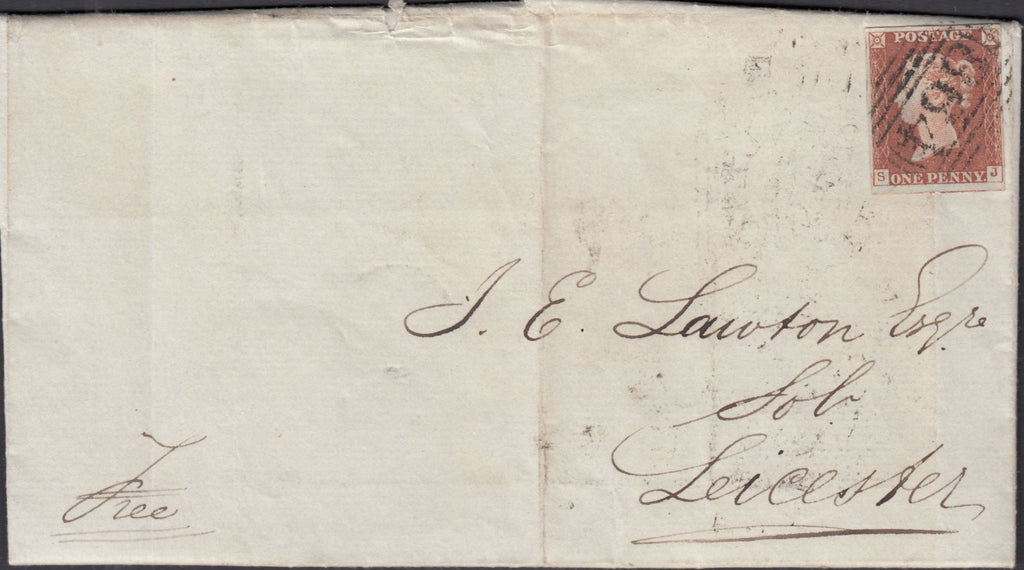 POSTAGE
S ONE PENNY. J
J. E. Lawton Esqre
Solr
Leicester
Free